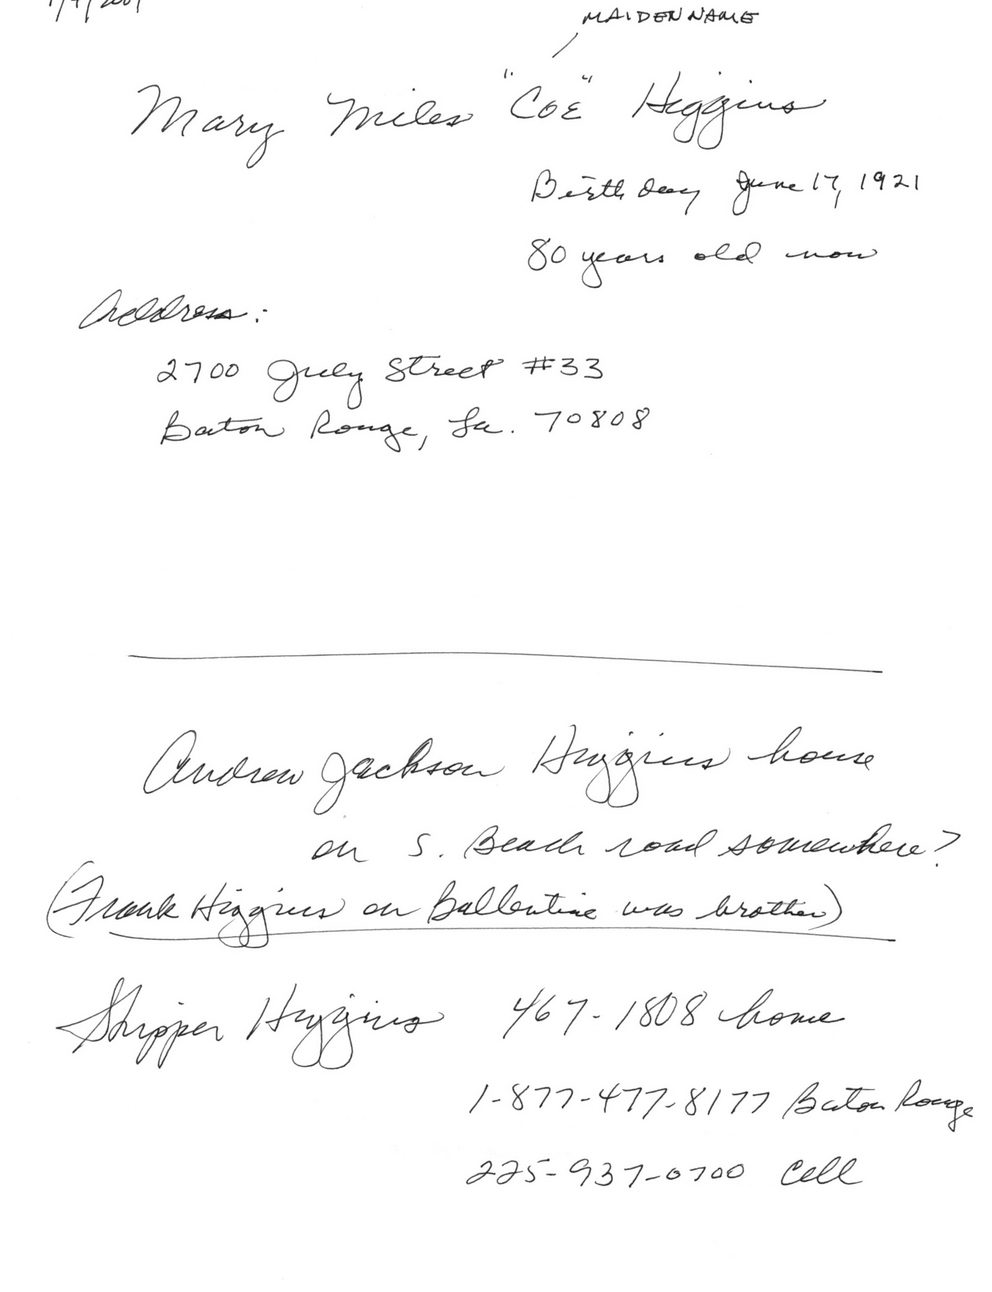 MAIDEN NAME
Mary Miles "Coe" Higgins
Birthday June 17, 1921
80 years old now
Address:
2700 July Street #33
Baton Rouge, La. 70808
Andrew Jackson Higgins house
on S. Beach road somewhere?
(Frank Higgins on Ballentine was brother)
Skipper Higgins 467-1808 home
1-877-477-8177 Baton Rouge
225-937-0700 Cell